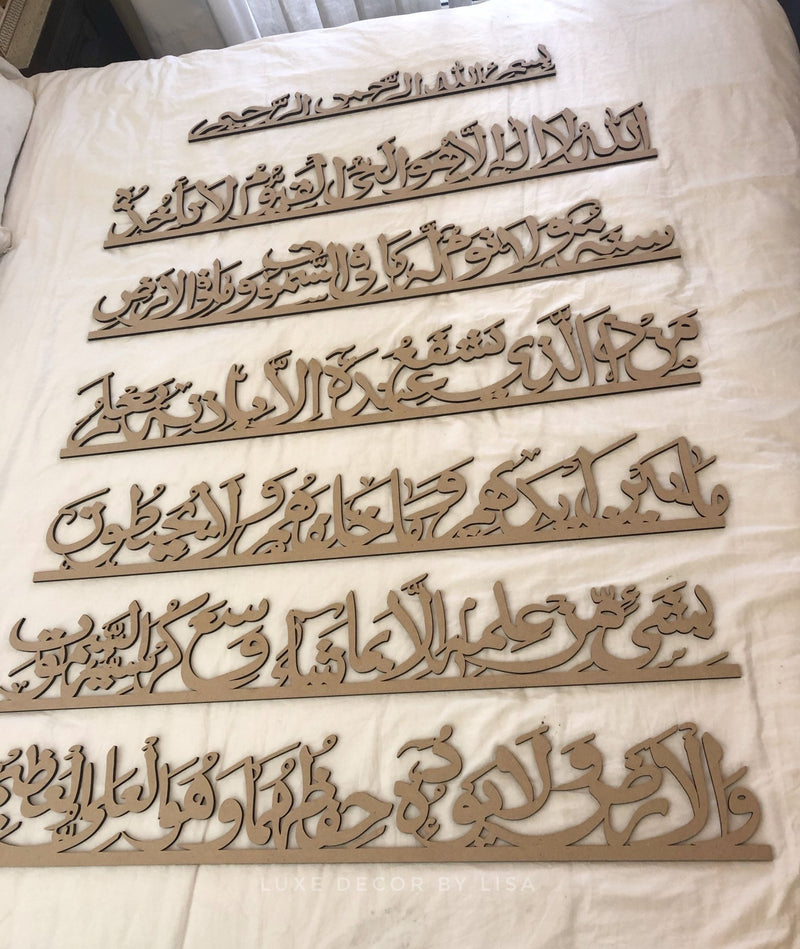 بسم الله الرحمن الرحيم
الله لا إله إلا هو الحي القيوم لا تأخذه
سنة ولا نوم له ما في السموت وما في الأرض
من ذا الذي يشفع عنده إلا بإذنه يعلم
ما بين أيديهم وما خلفهم ولا يحيطون
بشيء من علمه إلا بما شاء وسع كرسيه السموت
والأرض ولا يؤده حفظهما وهو العلي العظيم
LUXE DECOR BY LISA